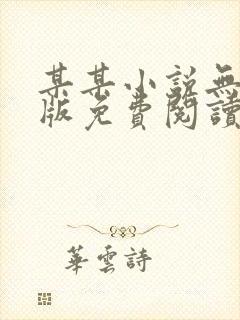 某某小説無
版免費閱讀
華雲詩